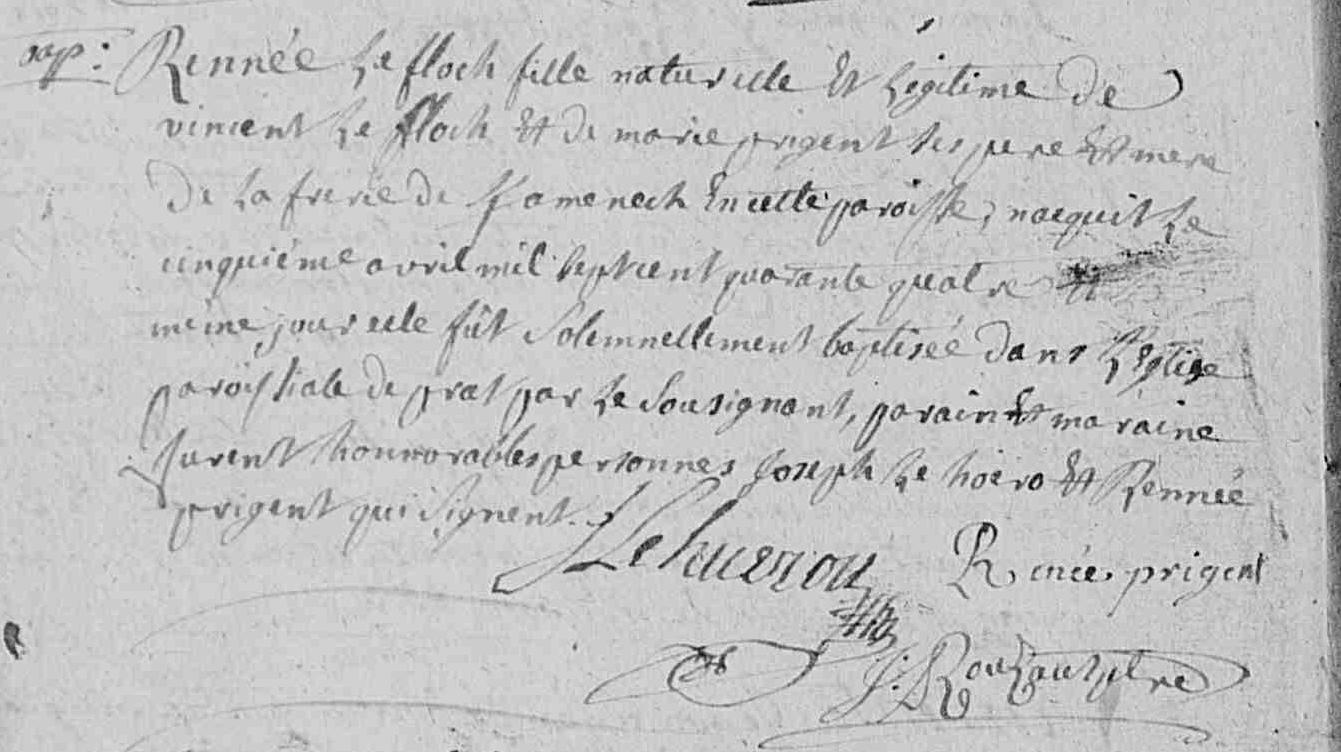 Rennée Le floch fille naturelle Et Legitime de
vincent Le floch Et de marie prigent ses pere Et mere
De La frerie de Kamenech En cette paroisse, nacquit Le
cinquiéme avril mil sept cent quarante quatre Et
meme jour elle fût Solemnellement baptisée dans L'Eglise
paroissiale de prat par Le Sousignant, parain Et maraine
furent honnorables personnes Joseph Le hoero Et Rennée
prigent qui signent.
Renée prigent